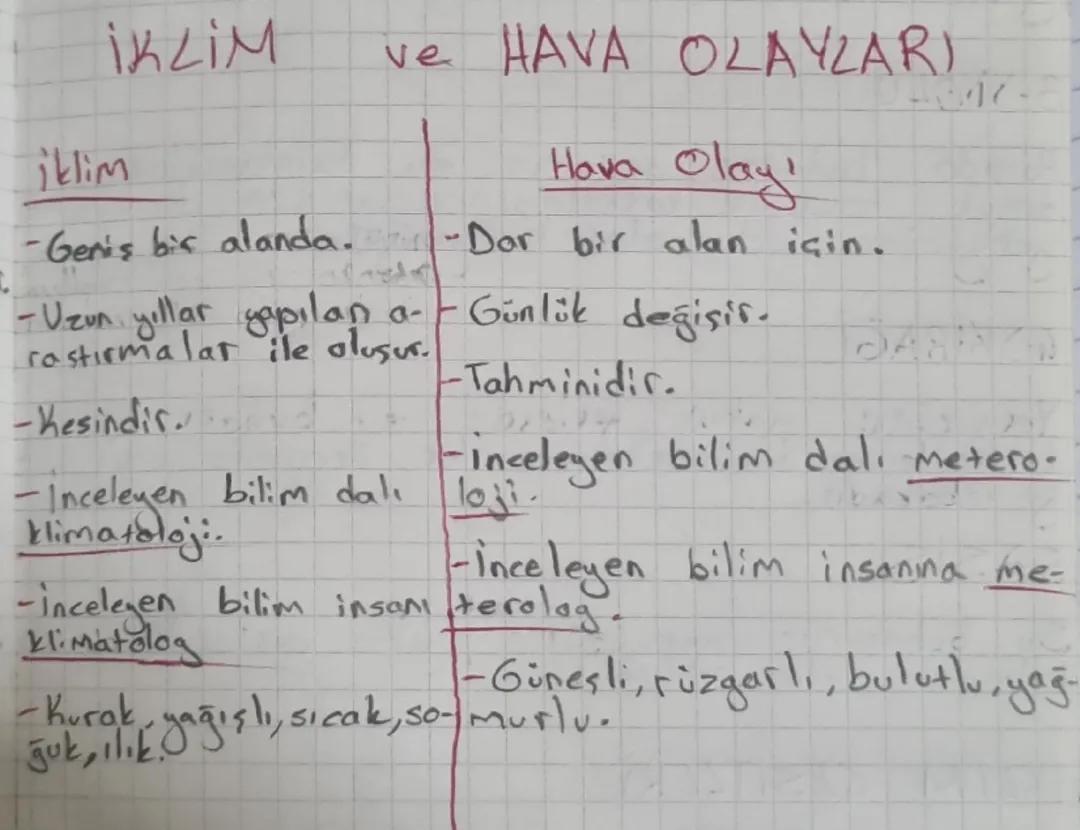 İKLİM ve HAVA OLAYLARI
iklim
-Geniş bir alanda.
-Uzun yıllar yapılan a-
raştırmalar ile oluşur.
-Kesindir.
-İnceleyen bilim dalı
klimatoloji.
-inceleyen bilim insanı
klimatolog
-Kurak, yağışlı, sıcak, so-
ğuk, ılık.
Hava Olayı
-Dar bir alan için.
-Günlük değişir.
-Tahminidir.
-inceleyen bilim dalı metero-
loji.
-İnceleyen bilim insanına me-
terolog.
-Güneşli, rüzgarlı, bulutlu, yağ-
murlu.